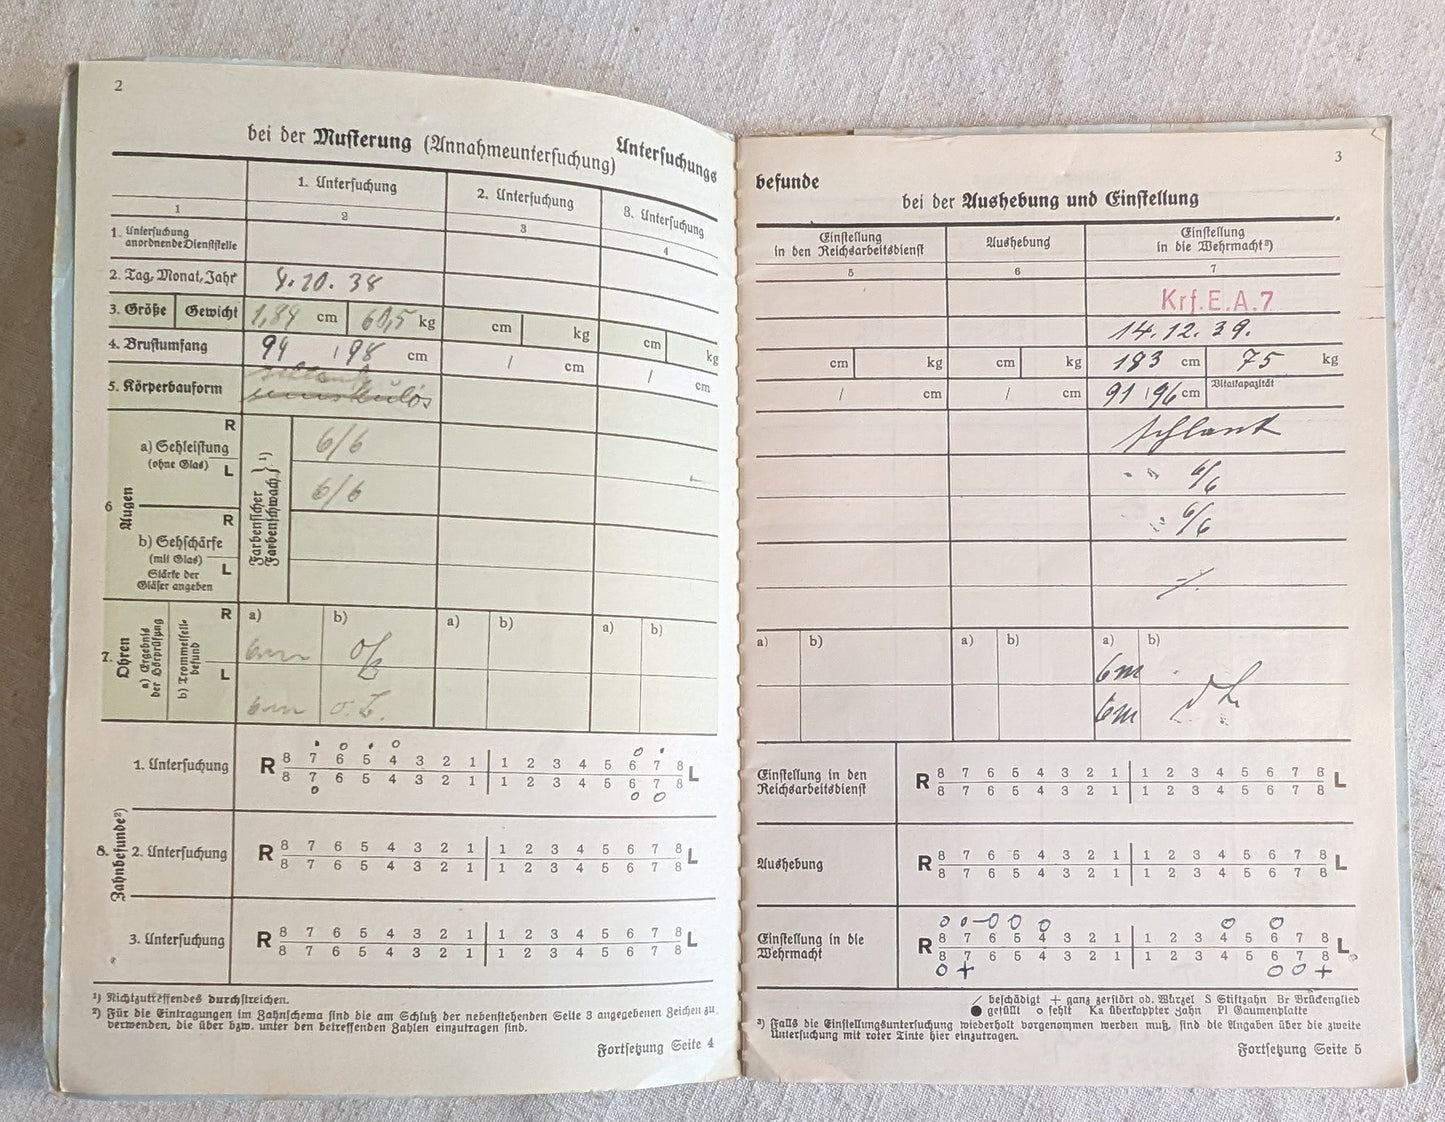 2
bei der Musterung (Annahmeuntersuchung)
Untersuchungs
1. Untersuchung
2. Untersuchung
3. Untersuchung
1
2
3
4
1. Untersuchung
anordnende Dienststelle
2. Tag, Monat, Jahr
4. 10. 38
3. Größe
Gewicht
1,84 cm
kg
cm
kg
cm
kg
4. Brustumfang
94 / 98 cm
/ cm
/ cm
5. Körperbauform
muskulös
6 Augen
a) Sehleistung
(ohne Glas)
R
L
b) Sehschärfe
(mit Glas)
Stärke der
Gläser angeben
R
L
Farbensicher
Farbenschwach } ¹)
6/6
6/6
7. Ohren
a) Ergebnis
der Hörprüfung
b) Trommelfell-
befund
R
L
a)
b)
a)
b)
a)
b)
6m
6m
8. Zahnbefunde²)
1. Untersuchung
R 8 7 6 5 4 3 2 1 | 1 2 3 4 5 6 7 8 L
8 7 6 5 4 3 2 1 | 1 2 3 4 5 6 7 8
2. Untersuchung
R 8 7 6 5 4 3 2 1 | 1 2 3 4 5 6 7 8 L
8 7 6 5 4 3 2 1 | 1 2 3 4 5 6 7 8
3. Untersuchung
R 8 7 6 5 4 3 2 1 | 1 2 3 4 5 6 7 8 L
8 7 6 5 4 3 2 1 | 1 2 3 4 5 6 7 8
¹) Nichtzutreffendes durchstreichen.
²) Für die Eintragungen im Zahnschema sind die am Schluß der nebenstehenden Seite 3 angegebenen Zeichen zu
verwenden, die über bzw. unter den betreffenden Zahlen einzutragen sind.
Fortsetzung Seite 4
3
befunde
bei der Aushebung und Einstellung
Einstellung
in den Reichsarbeitsdienst
Aushebung
Einstellung
in die Wehrmacht³)
5
6
7
Krf.E.A.7
14.12.39.
cm
kg
cm
kg
183 cm
75 kg
/ cm
/ cm
91 / 96 cm
Vitalkapazität
schlank
6/6
6/6
a)
b)
a)
b)
a)
b)
6m
6m
Einstellung in den
Reichsarbeitsdienst
R 8 7 6 5 4 3 2 1 | 1 2 3 4 5 6 7 8 L
8 7 6 5 4 3 2 1 | 1 2 3 4 5 6 7 8
Aushebung
R 8 7 6 5 4 3 2 1 | 1 2 3 4 5 6 7 8 L
8 7 6 5 4 3 2 1 | 1 2 3 4 5 6 7 8
Einstellung in die
Wehrmacht
R 8 7 6 5 4 3 2 1 | 1 2 3 4 5 6 7 8 L
8 7 6 5 4 3 2 1 | 1 2 3 4 5 6 7 8
/ beschädigt + ganz zerstört od. Wurzel S Stiftzahn Br Brückenglied
● gefüllt o fehlt Ka überkappter Zahn Pl Gaumenplatte
³) Falls die Einstellungsuntersuchung wiederholt vorgenommen werden muß, sind die Angaben über die zweite
Untersuchung mit roter Tinte hier einzutragen.
Fortsetzung Seite 5